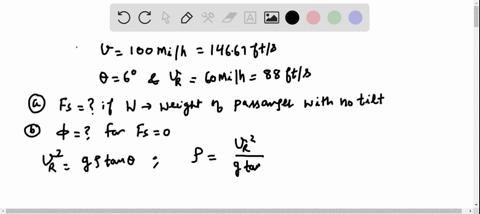 v = 100 mi/h = 146.67 ft/s
θ = 6° & v_R = 60 mi/h = 88 ft/s
(a) Fs = ? if W → weight of passanger with no tilt
(b) ϕ = ? for Fs = 0
v_R² = gρ tanθ ; ρ = v_R² / g tan